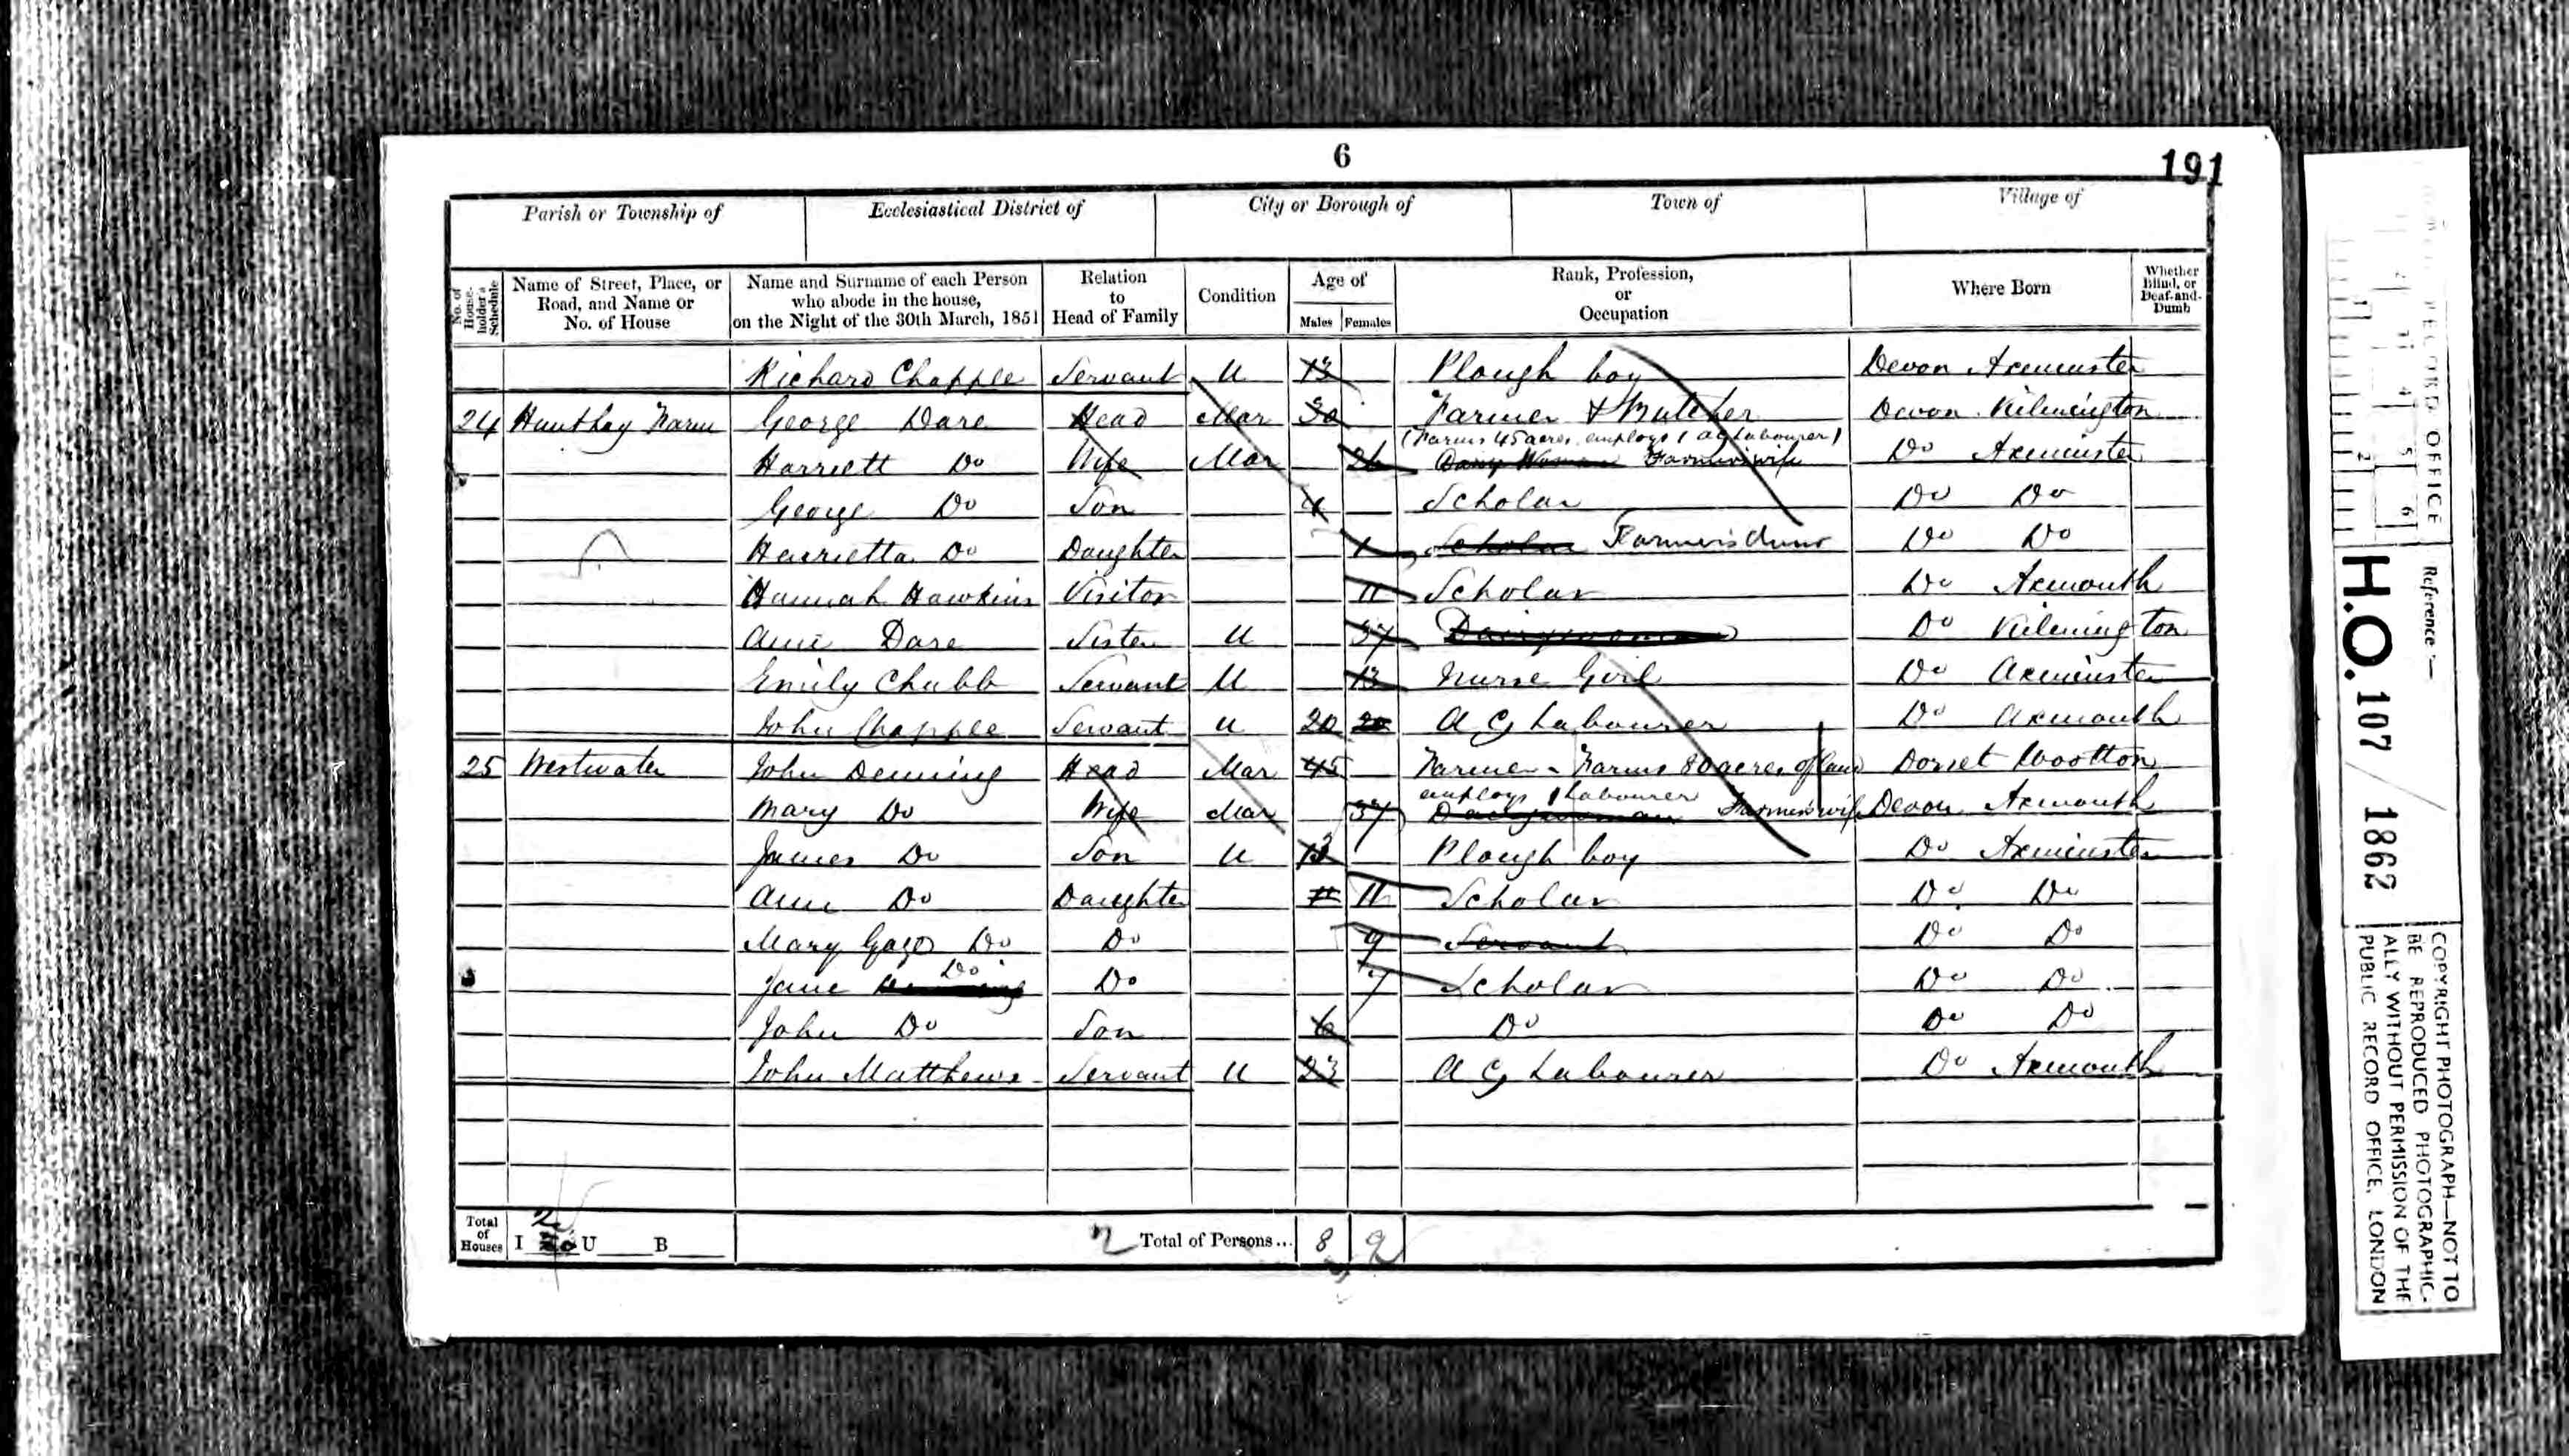 6
191
Parish or Township of Ecclesiastical District of City or Borough of Town of Village of
No. of House-holder's Schedule Name of Street, Place, or Road, and Name or No. of House Name and Surname of each Person who abode in the house, on the Night of the 30th March, 1851 Relation to Head of Family Condition Age of Males Females Rank, Profession, or Occupation Where Born Whether Blind, or Deaf-and-Dumb
Richard Chapple Servant U 13 Plough boy Devon Axminster
24 Hunthay Farm George Dare Head Mar 30 Farmer & Butcher Devon Kilmington
(Farms 45 acres employs 1 ag labourer)
Harriett Do Wife Mar 26 Dairy Woman Farmer's wife Do Axminster
George Do Son 4 Scholar Do Do
Henrietta Do Daughter 1 Scholar Farmer's Do Do
Hannah Hawkins Visitor 11 Scholar Do Axmouth
Ann Dare Sister U 37 Dairywoman Do Kilmington
Emily Chubb Servant U 13 Nurse Girl Do Axminster
John Chapple Servant U 20 20 Ag Labourer Do Axmouth
25 Westwater John Deming Head Mar 45 Farmer - Farms 80 acres of land Dorset Wootton
employs 1 labourer
Mary Do Wife Mar 37 Dairywoman Farmer's wife Devon Axmouth
James Do Son U 13 Plough boy Do Axminster
Ann Do Daughter 11 11 Scholar Do Do
Mary Do Do 9 Servant Do Do
Jane Do Do 7 Scholar Do Do
John Do Son 6 Do Do Do
John Matthews Servant U 23 Ag Labourer Do Axmouth
Total of Houses I 2 U B Total of Persons... 8 9
PUBLIC RECORD OFFICE
1 2 4 5 6
Reference:-
H.O. 107 / 1862
COPYRIGHT PHOTOGRAPH—NOT TO
BE REPRODUCED PHOTOGRAPHIC-
ALLY WITHOUT PERMISSION OF THE
PUBLIC RECORD OFFICE, LONDON